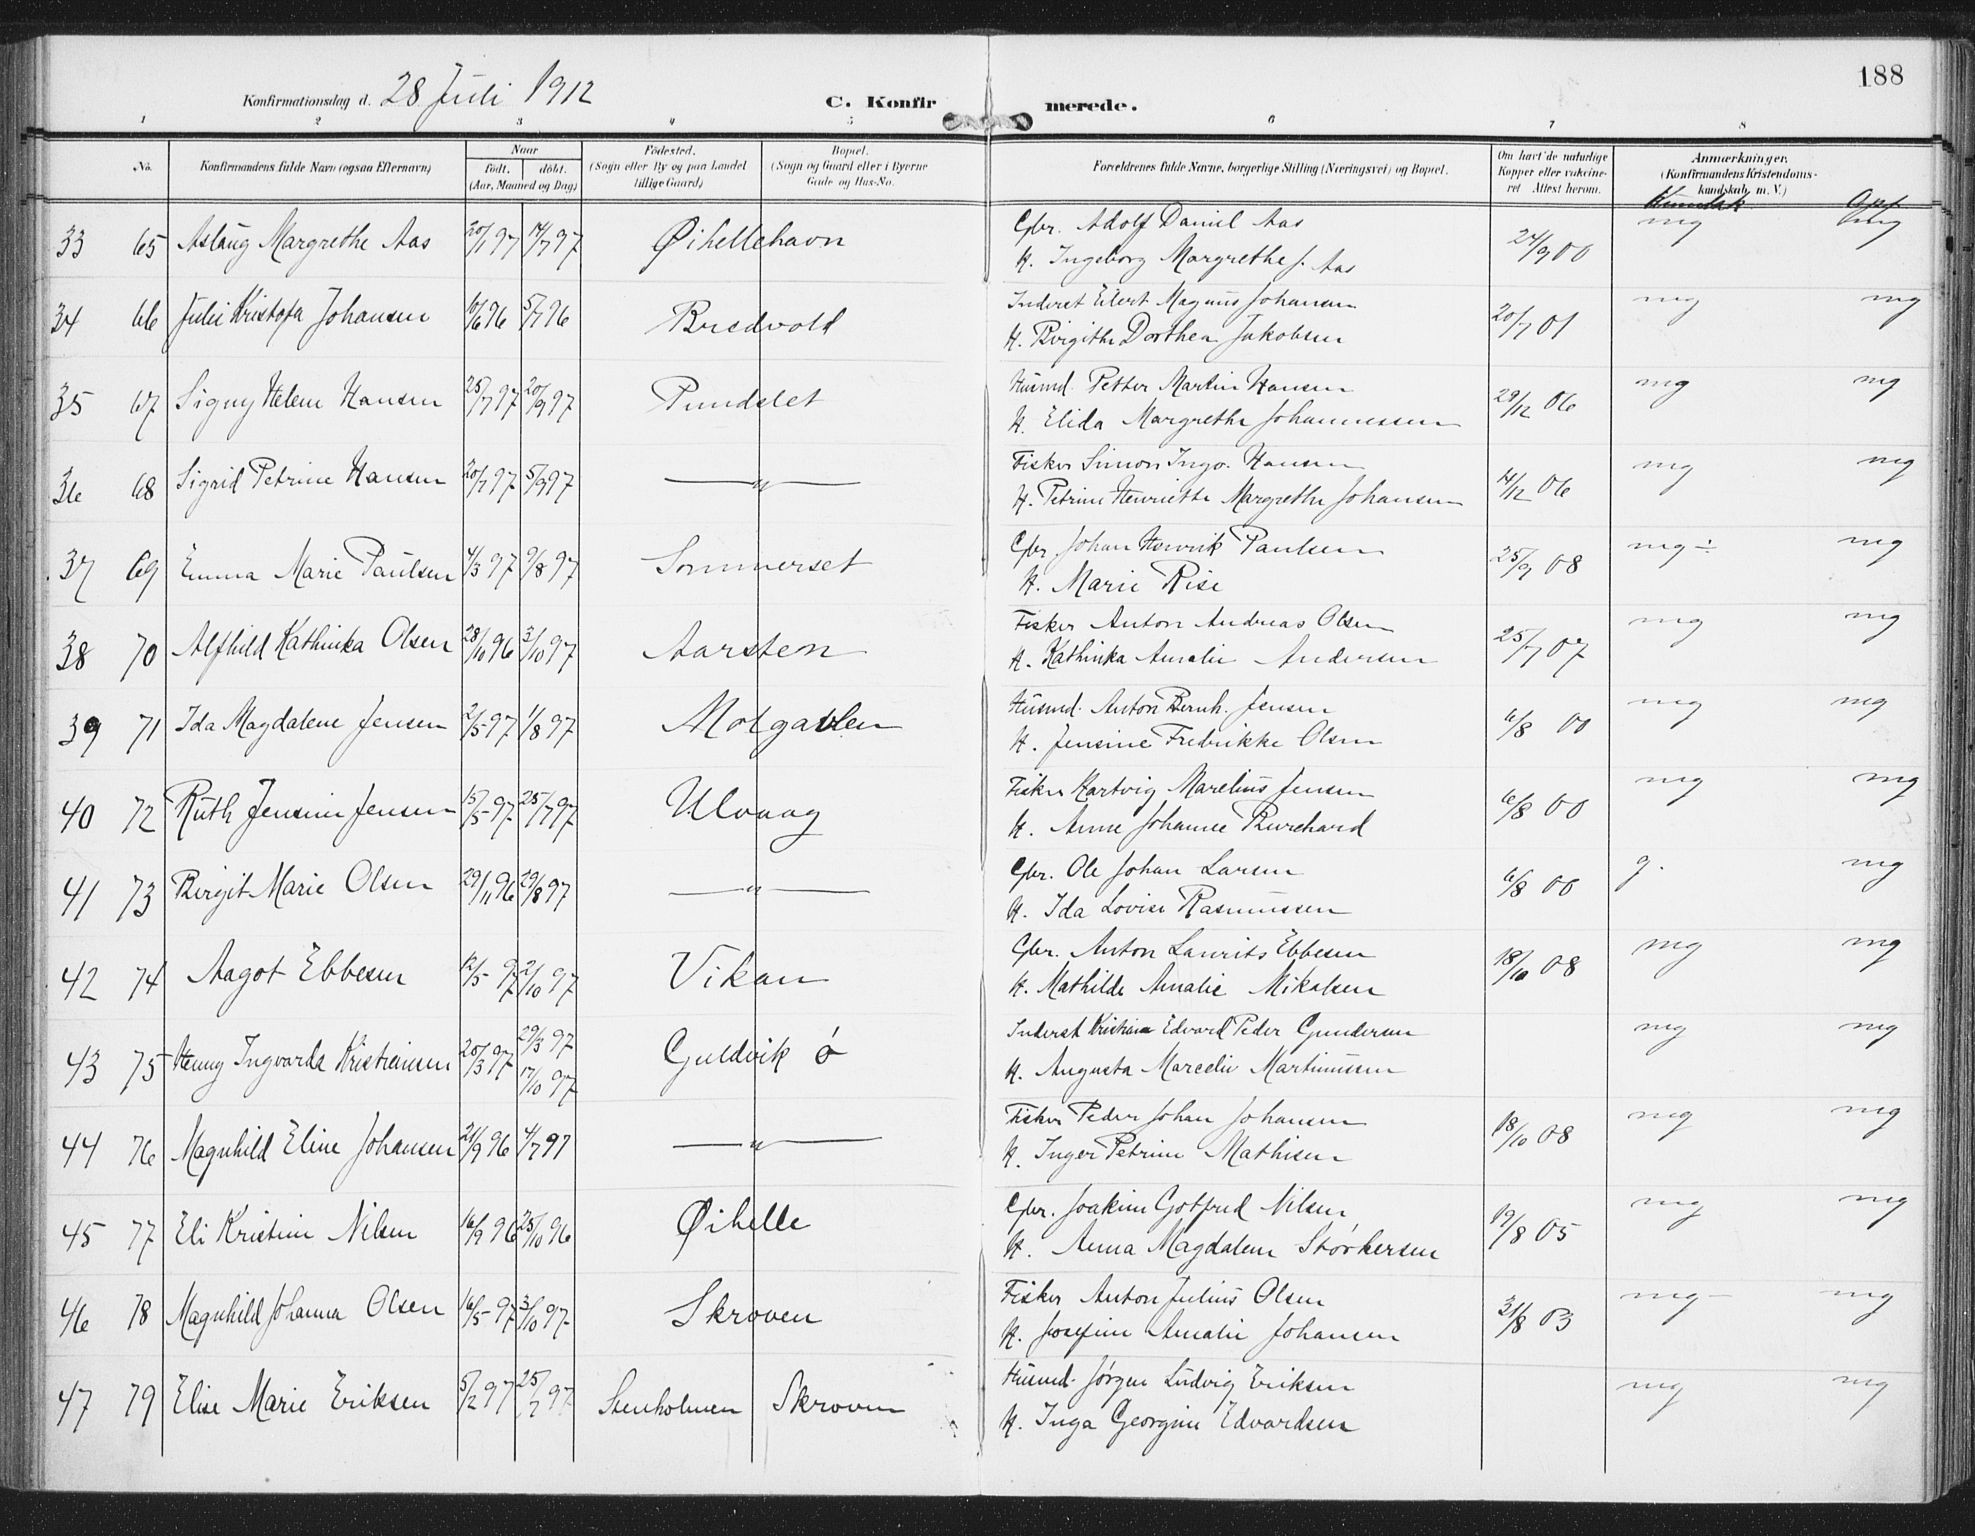 188
Konfirmationsdag d. 28 Juli 1912
C. Konfirmerede.
1 2 3 4 5 6 7 8
No. Konfirmandens fulde Navn (ogsaa Efternavn) Naar Födested. Bopæl. Forældrenes fulde Navne, borgerlige Stilling (Næringsvei) og Bopæl. Om havt de naturlige Anmærkninger.
födt. döbt. (Sogn eller By og paa Landet (Sogn og Gaard eller i Byerne Kopper eller vakcine- (Konfirmandens Kristendoms-
(Aar, Maaned og Dag) tillige Gaard) Gade og Hus-No. ret Attest herom. kundskab m. V.)
Kundsk. Opf.
33 65 Aslaug Margrethe Aas 20/1 97 14/7 97 Øihellehavn Gbr. Adolf Daniel Aas 24/9 00 mg mg
H. Ingeborg Margrethe f. Aas
34 66 Julie Kristofa Johansen 10/6 96 5/7 96 Bredvold Inderst Eilert Magnus Johansen 20/7 01 mg mg
H. Birgithe Dorthea Jakobsen
35 67 Signy Helene Hansen 25/7 97 20/9 97 Pundslet Husmd. Petter Martin Hansen 29/12 06 mg mg
H. Elida Margrethe Johannessen
36 68 Sigrid Petrine Hansen 20/7 97 5/9 97 —„— Fisker Simon Ingv. Hansen 14/12 06 mg mg
H. Petrine Henriette Margrethe Johansen
37 69 Emma Marie Paulsen 4/3 97 9/8 97 Sommerset Gbr Johan Henrik Paulsen 25/9 08 mg÷ mg
H. Marie Rise
38 70 Alfhild Kathinka Olsen 28/10 96 3/10 97 Aarsten Fisker Anton Andreas Olsen 25/7 07 mg mg
H. Kathinka Amalie Andersen
39 71 Ida Magdalene Jensen 2/5 97 1/8 97 Molgavlen Husmd. Anton Bernh. Jensen 6/8 00 mg mg
H. Jensine Fredrikke Olsen
40 72 Ruth Jensine Jensen 15/5 97 25/7 97 Ulvaag Fisker Hartvig Marelius Jensen 6/8 00 mg mg
H. Anne Johanne Burchard
41 73 Birgit Marie Olsen 29/11 96 29/8 97 —„— Gbr. Ole Johan Larsen 6/8 00 g. mg
H. Ida Lovise Rasmussen
42 74 Aagot Ebbesen 12/5 97 2/10 97 Vikan Gbr. Anton Laurits Ebbesen 18/10 08 mg mg
H. Mathilde Amalie Mikalsen
43 75 Henny Ingvarda Kristiansen 20/3 97 29/3 97 Guldvik ø Inderst Kristian Edvard Peder Gundersen mg mg
17/10 97 H. Augusta Marcelie Martinussen
44 76 Magnhild Eline Johansen 21/9 96 4/7 97 —„— Fisker Peder Johan Johansen 18/10 08 mg mg
H. Inger Petrine Mathisen
45 77 Eli Kristine Nilsen 16/9 96 25/10 96 Øihelle Gbr. Joakim Gotfred Nilsen 19/8 05 mg mg
H. Anna Magdalene Størkersen
46 78 Magnhild Johanna Olsen 16/5 97 3/10 97 Skroven Fisker Anton Julius Olsen 31/8 03 mg- mg
H. Josefine Amalie Johansen
47 79 Elise Marie Eriksen 5/2 97 25/7 97 Stenholmen Skroven Husmd. Jørgen Ludvig Eriksen mg mg
H. Inga Georgine Edvardsen